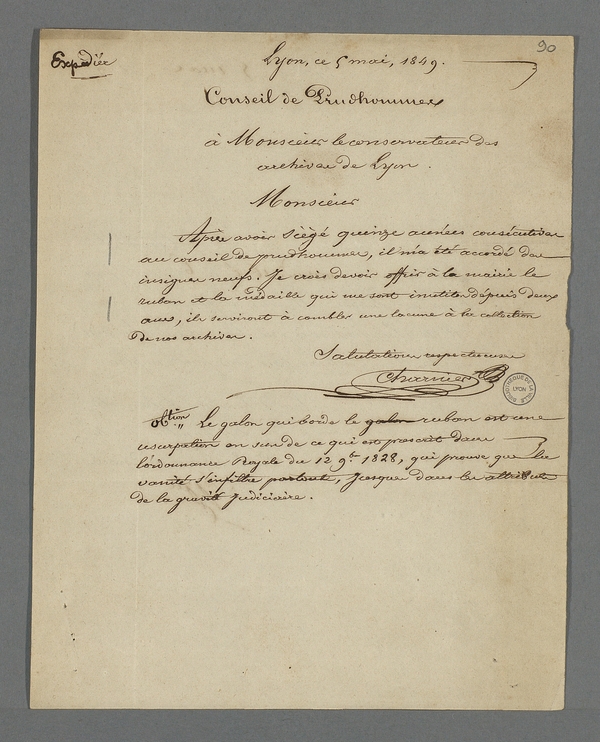 90
Expédiée
Lyon, ce 5 mai, 1849.
Conseil de Prudhommes
à Monsieur le conservateur des
archives de Lyon.
Monsieur
Après avoir siègé quinze années consécutives
au conseil de prudhommes, il m'a été accordé des
insignes neufs. Je crois devoir offrir à la mairie le
ruban et la médaille qui me sont inutiles depuis deux
ans, ils serviront à combler une lacune à la collection
de nos archives.
Salutations respectueuses
Charnier
BIBLIOTHEQUE DE LA VILLE LYON
obtion " Le galon qui borde le galon ruban est une
usurpation en sus de ce qui est prescrit dans
l'ordonnance Royale du 12 9bre 1828, qui prouve que la
vanité s'infiltre partout, jusque dans les attributs
de la gravité Judiciaire.